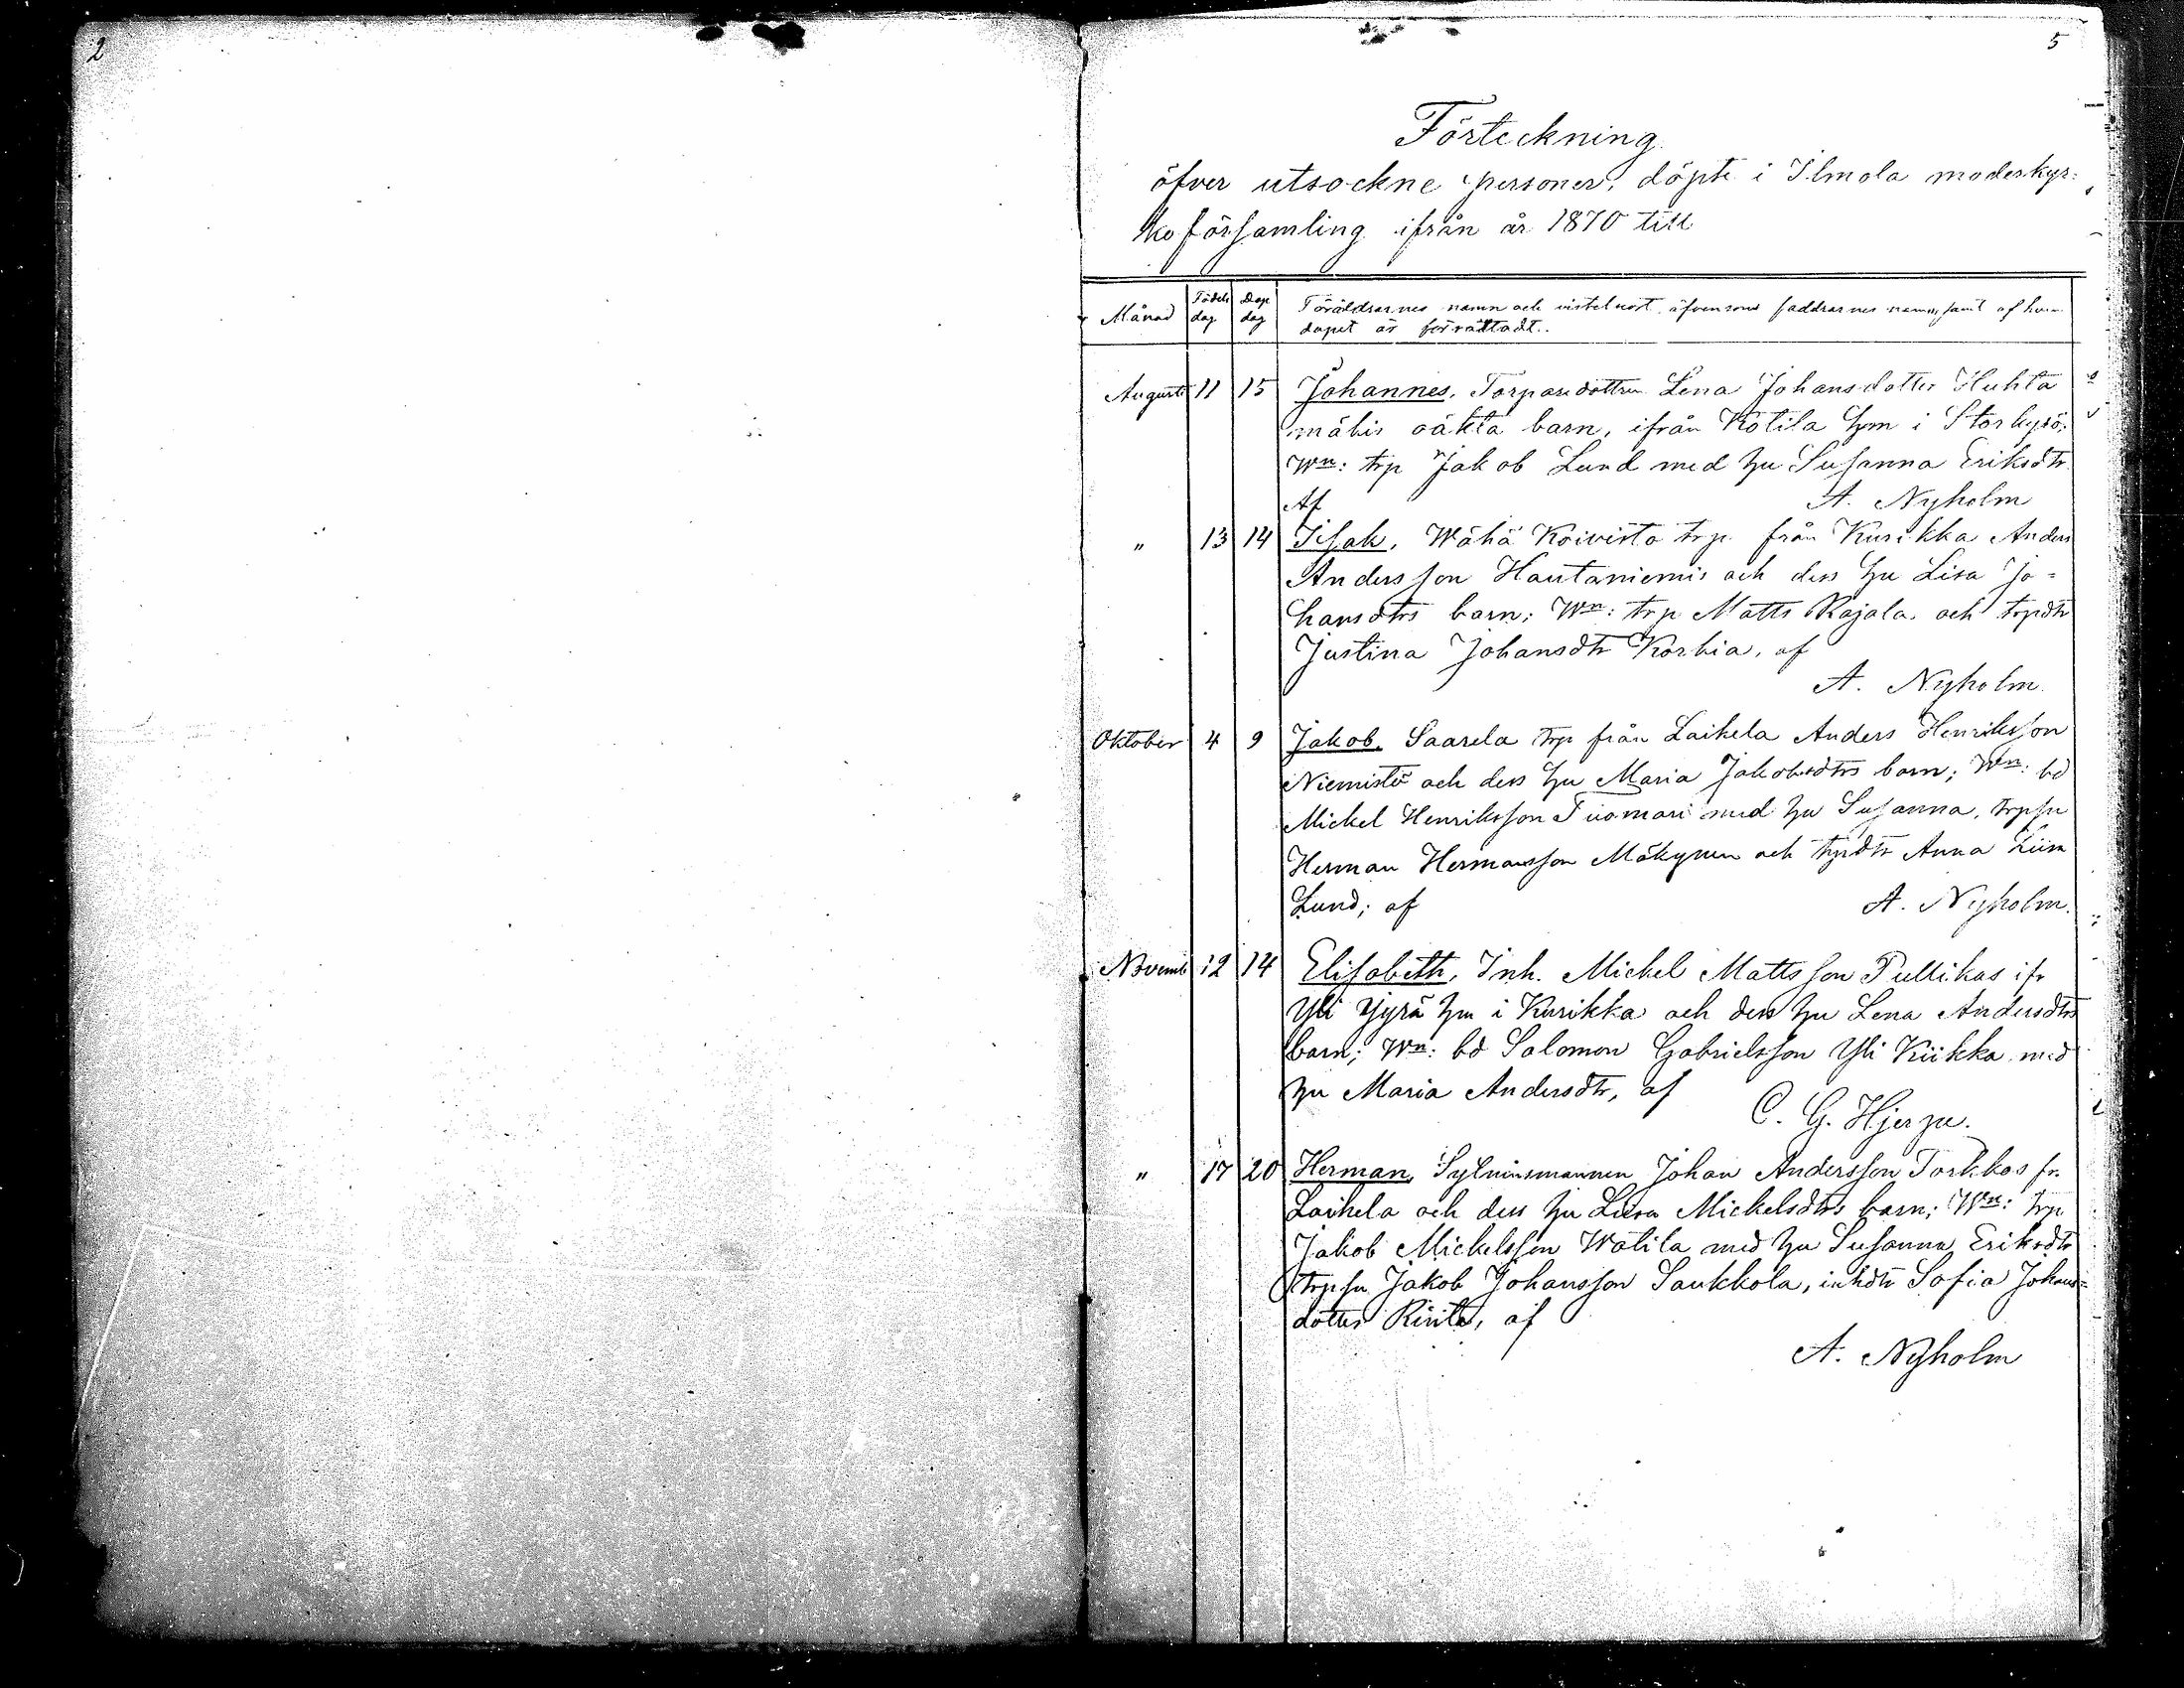 2
5
Förteckning
öfver utsockne personer, döpte i Ilmola moderkyr=
koförsamling ifrån år 1870 till
Månad Födels dag Dop dag Föräldrarnes namn och vistelseort äfvensom faddrarnes namn, samt af hvem
dopet är förrättadt.
Augusti 11 15 Johannes, Torparedottren Lena Johansdotter Huhta
mäkis oäkta barn, ifrån Kotila hm i Storkyrö;
Wn: trp Jakob Lund med hu Susanna Eriksdtr
Af A. Nyholm
" 13 14 Isak, Wähä Koivisto trp från Kurikka Anders
Andersson Hautaniemis och dess hu Lisa Jo=
hansdtrs barn; Wn: trp Matts Rajala och trpdtr
Justina Johansdtr Korhia, af
A. Nyholm
Oktober 4 9 Jakob, Saarela trp från Laihela Anders Henriksson
Niemistö och dess hu Maria Jakobsdtrs barn; Wn: bd
Mickel Henriksson Tuomari med hu Susanna, trpsn
Herman Hermansson Mäkynen och trpdtr Anna Liisa
Lund; af A. Nyholm.
Novemb 12 14 Elisabeth, Inh. Mickel Mattsson Pullikas ifr
Yli Jyrä hm i Kurikka och dess hu Lena Andersdtrs
barn; Wn: bd Salomon Gabrielsson Yli Kiikka med
hu Maria Andersdtr, af
C. G. Hjerpe.
" 17 20 Herman, Sytninsmannen Johan Andersson Torkkos fr.
Laihela och dess hu Liisa Mickelsdtrs barn; Wn: trp
Jakob Mickelsson Wätila med hu Susanna Eriksdtr
trpsn Jakob Johansson Saukkola, inhdtr Sofia Johans=
dotter Rinta, af
A. Nyholm